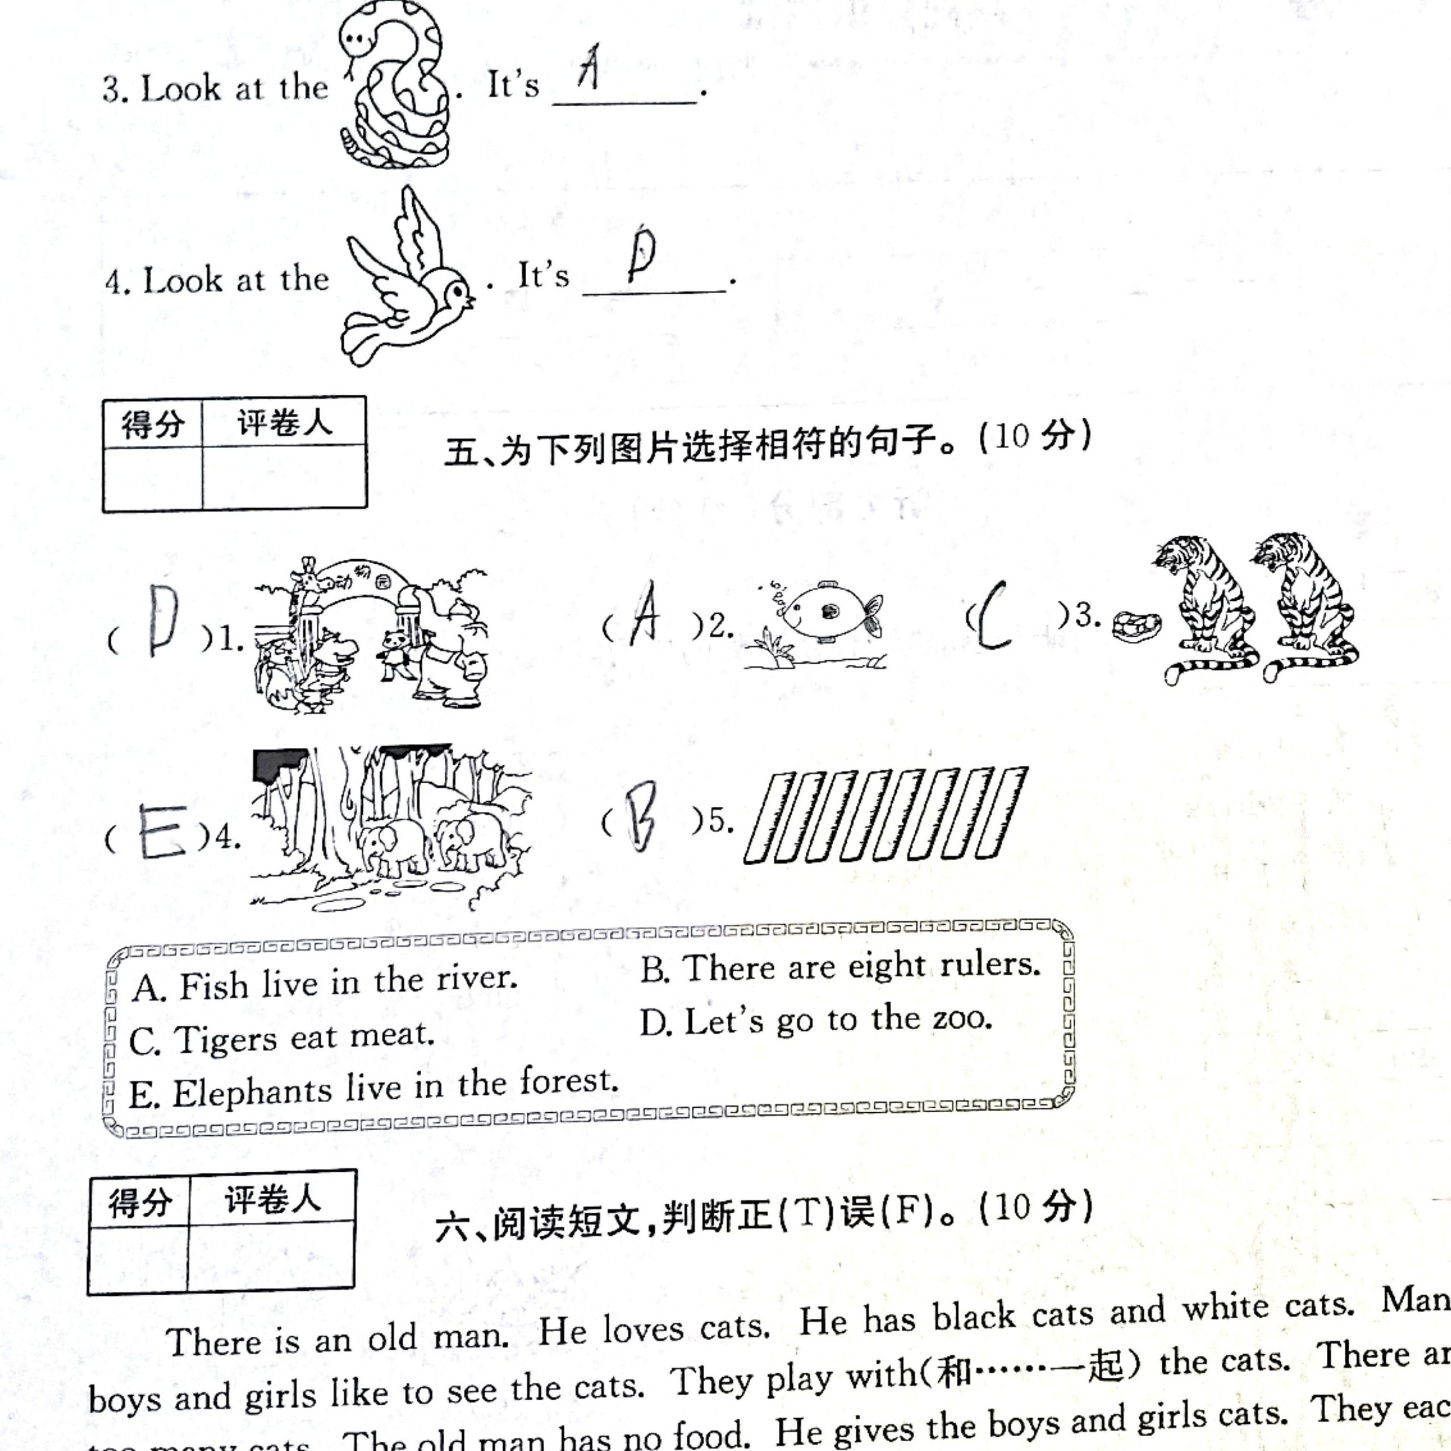 3. Look at the . It's A .
4. Look at the . It's D .
得分 评卷人
五、为下列图片选择相符的句子。(10 分)
动物园
( D )1. ( A )2. ( C )3.
( E )4. ( B )5.
A. Fish live in the river. B. There are eight rulers.
C. Tigers eat meat. D. Let's go to the zoo.
E. Elephants live in the forest.
得分 评卷人
六、阅读短文,判断正(T)误(F)。(10 分)
There is an old man. He loves cats. He has black cats and white cats. Man
boys and girls like to see the cats. They play with(和……一起) the cats. There ar
too many cats. The old man has no food. He gives the boys and girls cats. They eac